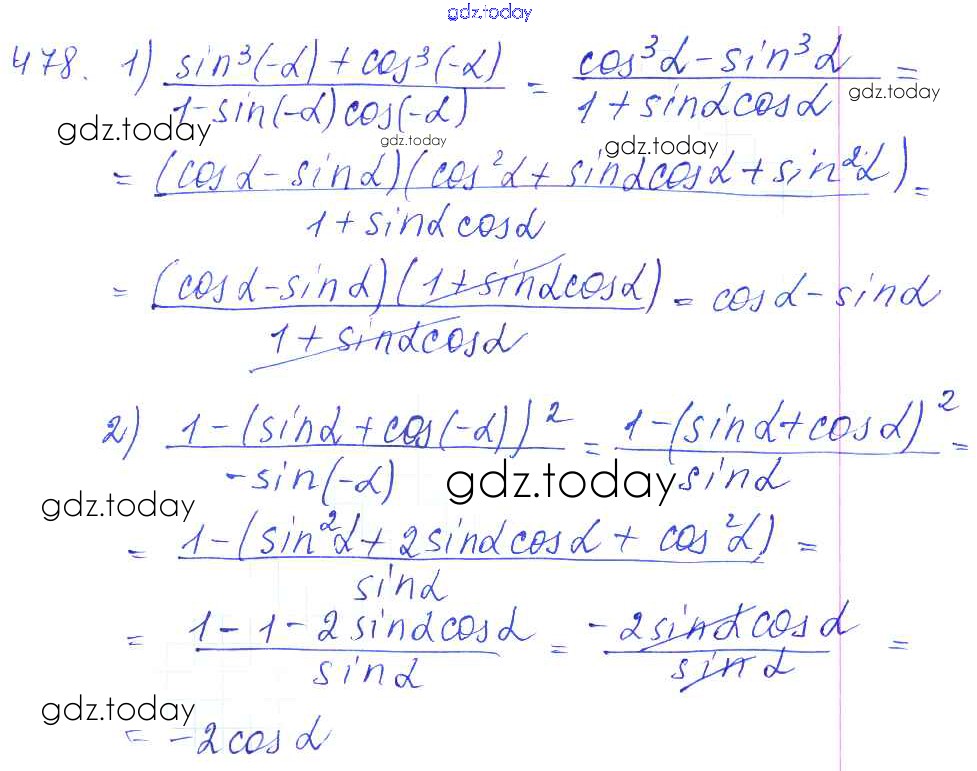 gdz.today
478. 1) (sin³(-α) + cos³(-α)) / (1 - sin(-α)cos(-α)) = (cos³α - sin³α) / (1 + sinαcosα) =
gdz.today
gdz.today gdz.today gdz.today
= (cosα - sinα)(cos²α + sinαcosα + sin²α) / (1 + sinαcosα) =
= (cosα - sinα)(1 + sinαcosα) / (1 + sinαcosα) = cosα - sinα
2) (1 - (sinα + cos(-α))²) / (-sin(-α)) = (1 - (sinα + cosα)²) / sinα =
gdz.today gdz.today
= (1 - (sin²α + 2sinαcosα + cos²α)) / sinα =
= (1 - 1 - 2sinαcosα) / sinα = (-2sinαcosα) / sinα =
gdz.today
= -2cosα